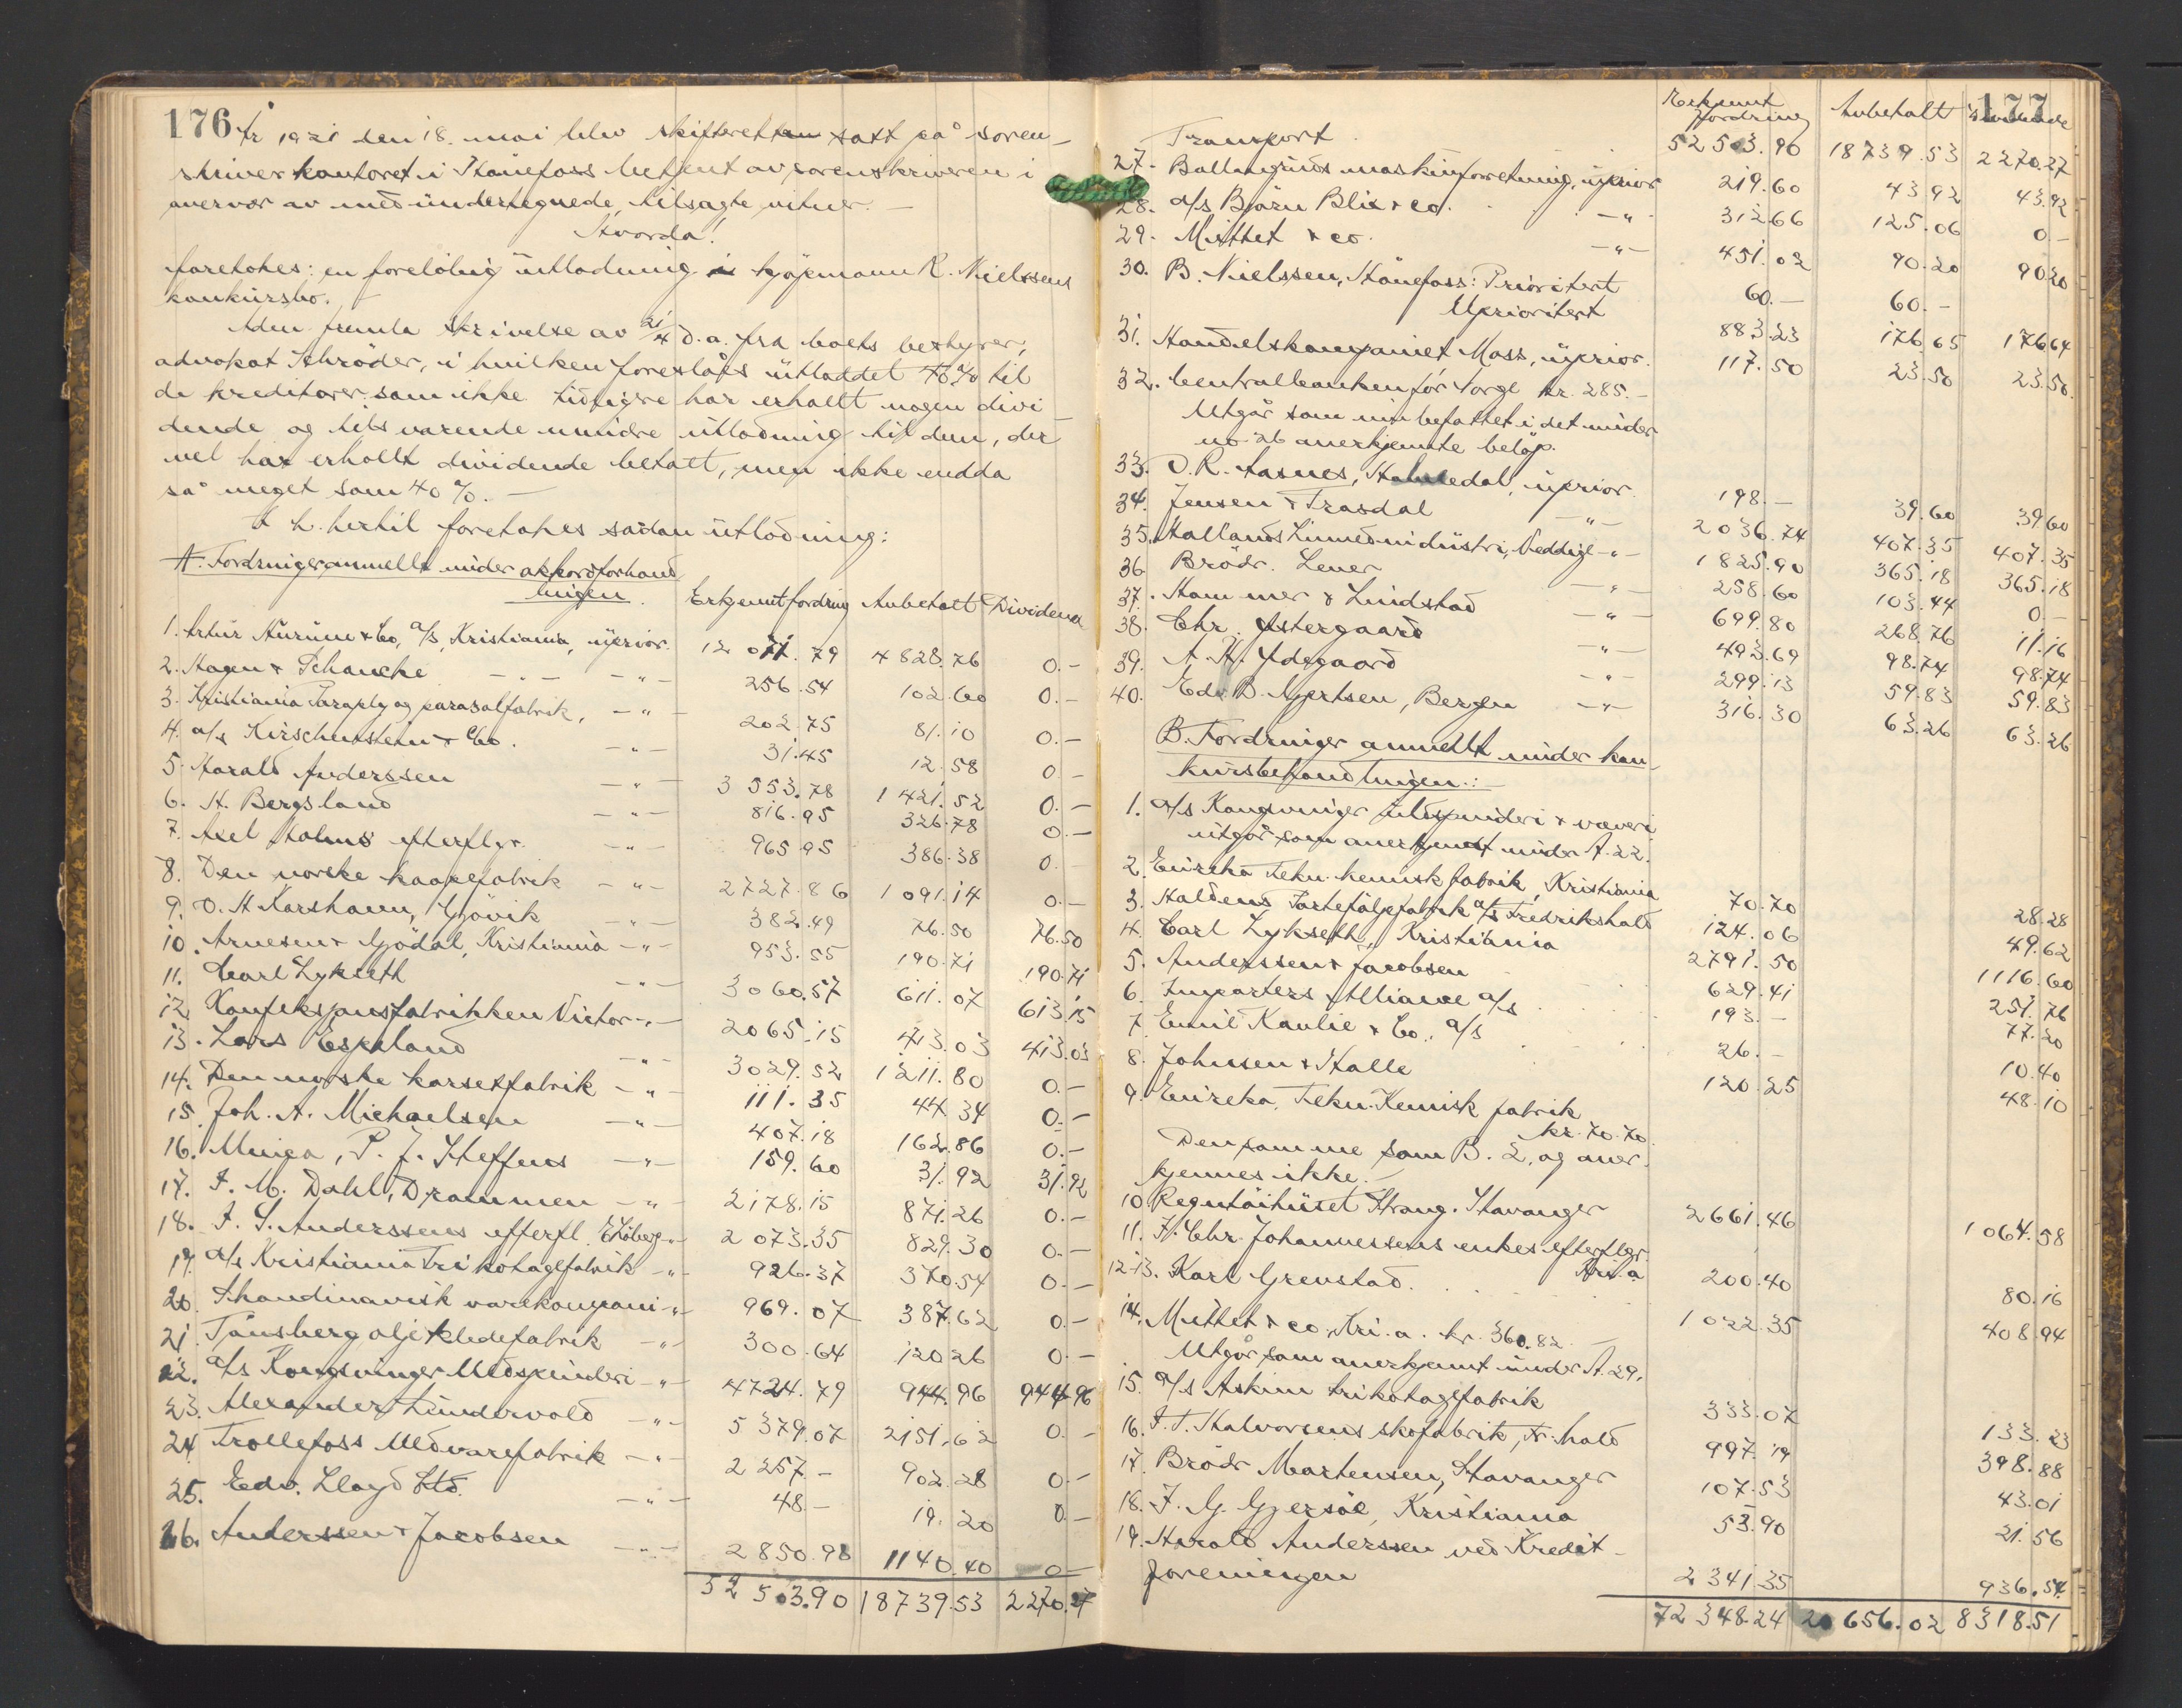 176
År 1921 den 18. mai blev skifteretten satt på soren-
skriverkontoret i Stånefoss betjent av sorenskriveren i
nærvær av medundertegnede tilsagte vitner. -
Hvorda!
foretokes: en foreløbig utlodning i kjøpmann R. Nielssens
konkursbo. -
Aden fremla skrivelse av 21/4 d.a. fra boets bestyrer,
advokat Schrøder, i hvilken foreslåes utloddet 40% til
de kreditorer, som ikke tidligere har erholdt nogen divi-
dende og tilsvarende mindre utlodning til dem, der
vel har erholdt dividende betalt, men ikke endda
så meget som 40%. -
I h. hertil foretokes sådan utlodning:
A. Fordringer anmeldt under akkordforhand-
lingen. Erkjent fordring Anbetalt Dividende
1. Artur Aurum & Co, a/s, Kristiania, uprior. 12 071.79 4 828.76 0.-
2. Hagen & Schancke -"- -"- 256.54 102.60 0.-
3. Kristiania Paraply og parasolfabrik, -"- 202.75 81.10 0.-
4. a/s Kirschenstein & Co. -"- 31.45 12.58 0.-
5. Harald Anderssen -"- 3 553.78 1 421.52 0.-
6. H. Bergsland -"- 816.95 326.78 0.-
7. Axel Holms efterflgr. -"- 965.95 386.38 0.-
8. Den norske kaapefabrik -"- 2727.86 1 091.14 0.-
9. O. H Karshavn, Gjøvik -"- 382.49 76.50 76.50
10. Arnesen & Gjødal, Kristiania -"- 953.55 190.71 190.71
11. Carl Lykseth -"- 3060.57 611.07 613.15
12. Konfeksjonsfabrikken Victor -"- 2065.15 413.03 413.03
13. Lars Espeland -"- 3029.52 1211.80 0.-
14. Den norske korsetfabrik -"- 111.35 44.34 0.-
15. Joh. A. Michaelsen -"- 407.18 162.86 0.-
16. Minga, P. J. Steffens -"- 159.60 31.92 31.92
17. F. M. Dahl, Drammen -"- 2178.15 871.26 0.-
18. F. S. Anderssens efterfl. -"- 2 073.35 829.30 0.-
19. a/s Kristiania Trikotagefabrik -"- 926.37 370.54 0.-
20. Skandinavisk varekompani -"- 969.07 387.62 0.-
21. Tønsberg oljeklædefabrik -"- 300.64 120.26 0.-
22. a/s Kongsvinger Uldspinderi -"- 4724.79 944.96 944.96
23. Alexander Lundervold -"- 5 379.07 2151.62 0.-
24. Trollefoss Uldvarefabrik -"- 2 257.- 902.28 0.-
25. Edv. Lloyd Ltd. -"- 48.- 19.20 0.-
26. Anderssen & Jacobsen -"- 2850.98 1140.40 0.-
52 503.90 18739.53 2270.27
177
Erkjennt fordring Anbetalt Dividende
Transport 52503.90 18739.53 2270.27
27. Ballangruds maskinforretning, uprior 219.60 43.92 43.92
28. a/s Bjørn Blix & co. -"- 312.66 125.06 0.-
29. Mittet & co. -"- 451.02 90.20 90.20
30. B. Nielssen, Stånefoss: Prioritert 60.- 60.-
Uprioritert 883.23 176.65 176.64
31. Handelskompaniet Moss, uprior. 117.50 23.50 23.50
32. Centralbanken for Norge kr. 285.-
Utgår som innbefattet i det under
no 26 anerkjennte beløp.
33. O. R. Aasnes, Halsedal, uprior. 198.- 39.60 39.60
34. Jensen & Frasdal -"- 2036.74 407.35 407.35
35. Hallands Linnedindustri, Veddige -"- 1 825.90 365.18 365.18
36. Brødr. Lener -"- 258.60 103.44 0.-
37. Hammer & Lindstad -"- 699.80 268.76 11.16
38. Chr. Østergaard -"- 493.69 98.74 98.74
39. A. H. Ødegaard -"- 299.13 59.83 59.83
40. Edv. B. Gjertsen, Bergen -"- 316.30 63.26 63.26
B. Fordringer anmeldt under kon-
kursbehandlingen: -
1. a/s Kongsvinger uldspinderi & væveri
utgår som anerkjent under A. 22.
2. Eureka tekn. kemisk fabrik, Kristiania 70.70 28.28
3. Haldens Porteføljefabrik a/s Fredrikshald 124.06 49.62
4. Carl Lykseth, Kristiania 2791.50 1116.60
5. Anderssen & Jacobsen 629.41 251.76
6. Importers Alliance a/s 193.- 77.20
7. Emil Kaulie & Co., a/s 26.- 10.40
8. Johnsen & Halle 120.25 48.10
9. Eureka, Tekn. Kemisk fabrik
kr. 70.70.
Den samme som B. 2, og aner-
kjennes ikke. -
10. Regntøihuset Strang. Stavanger 2661.46 1064.58
11. H. Chr. Johannessens enkes efterflgr.
Kri.a 200.40 80.16
12-13. Karl Grenstad. 1 022.35 408.94
14. Mittet & co, Kri.a. kr. 360.82. -
Utgår som anerkjennt under A. 29.
15. a/s Askim trikotagefabrik 333.07 133.23
16. F. T. Halvorsens skofabrik, Fr.hald 997.19 398.88
17. Brødr Martensen, Stavanger 107.53 43.01
18. F. G. Gjersøe, Kristiania 53.90 21.56
19. Harald Anderssen ved Kredit-
foreningen 2 341.35 936.54
72 348.24 20 656.02 8318.51